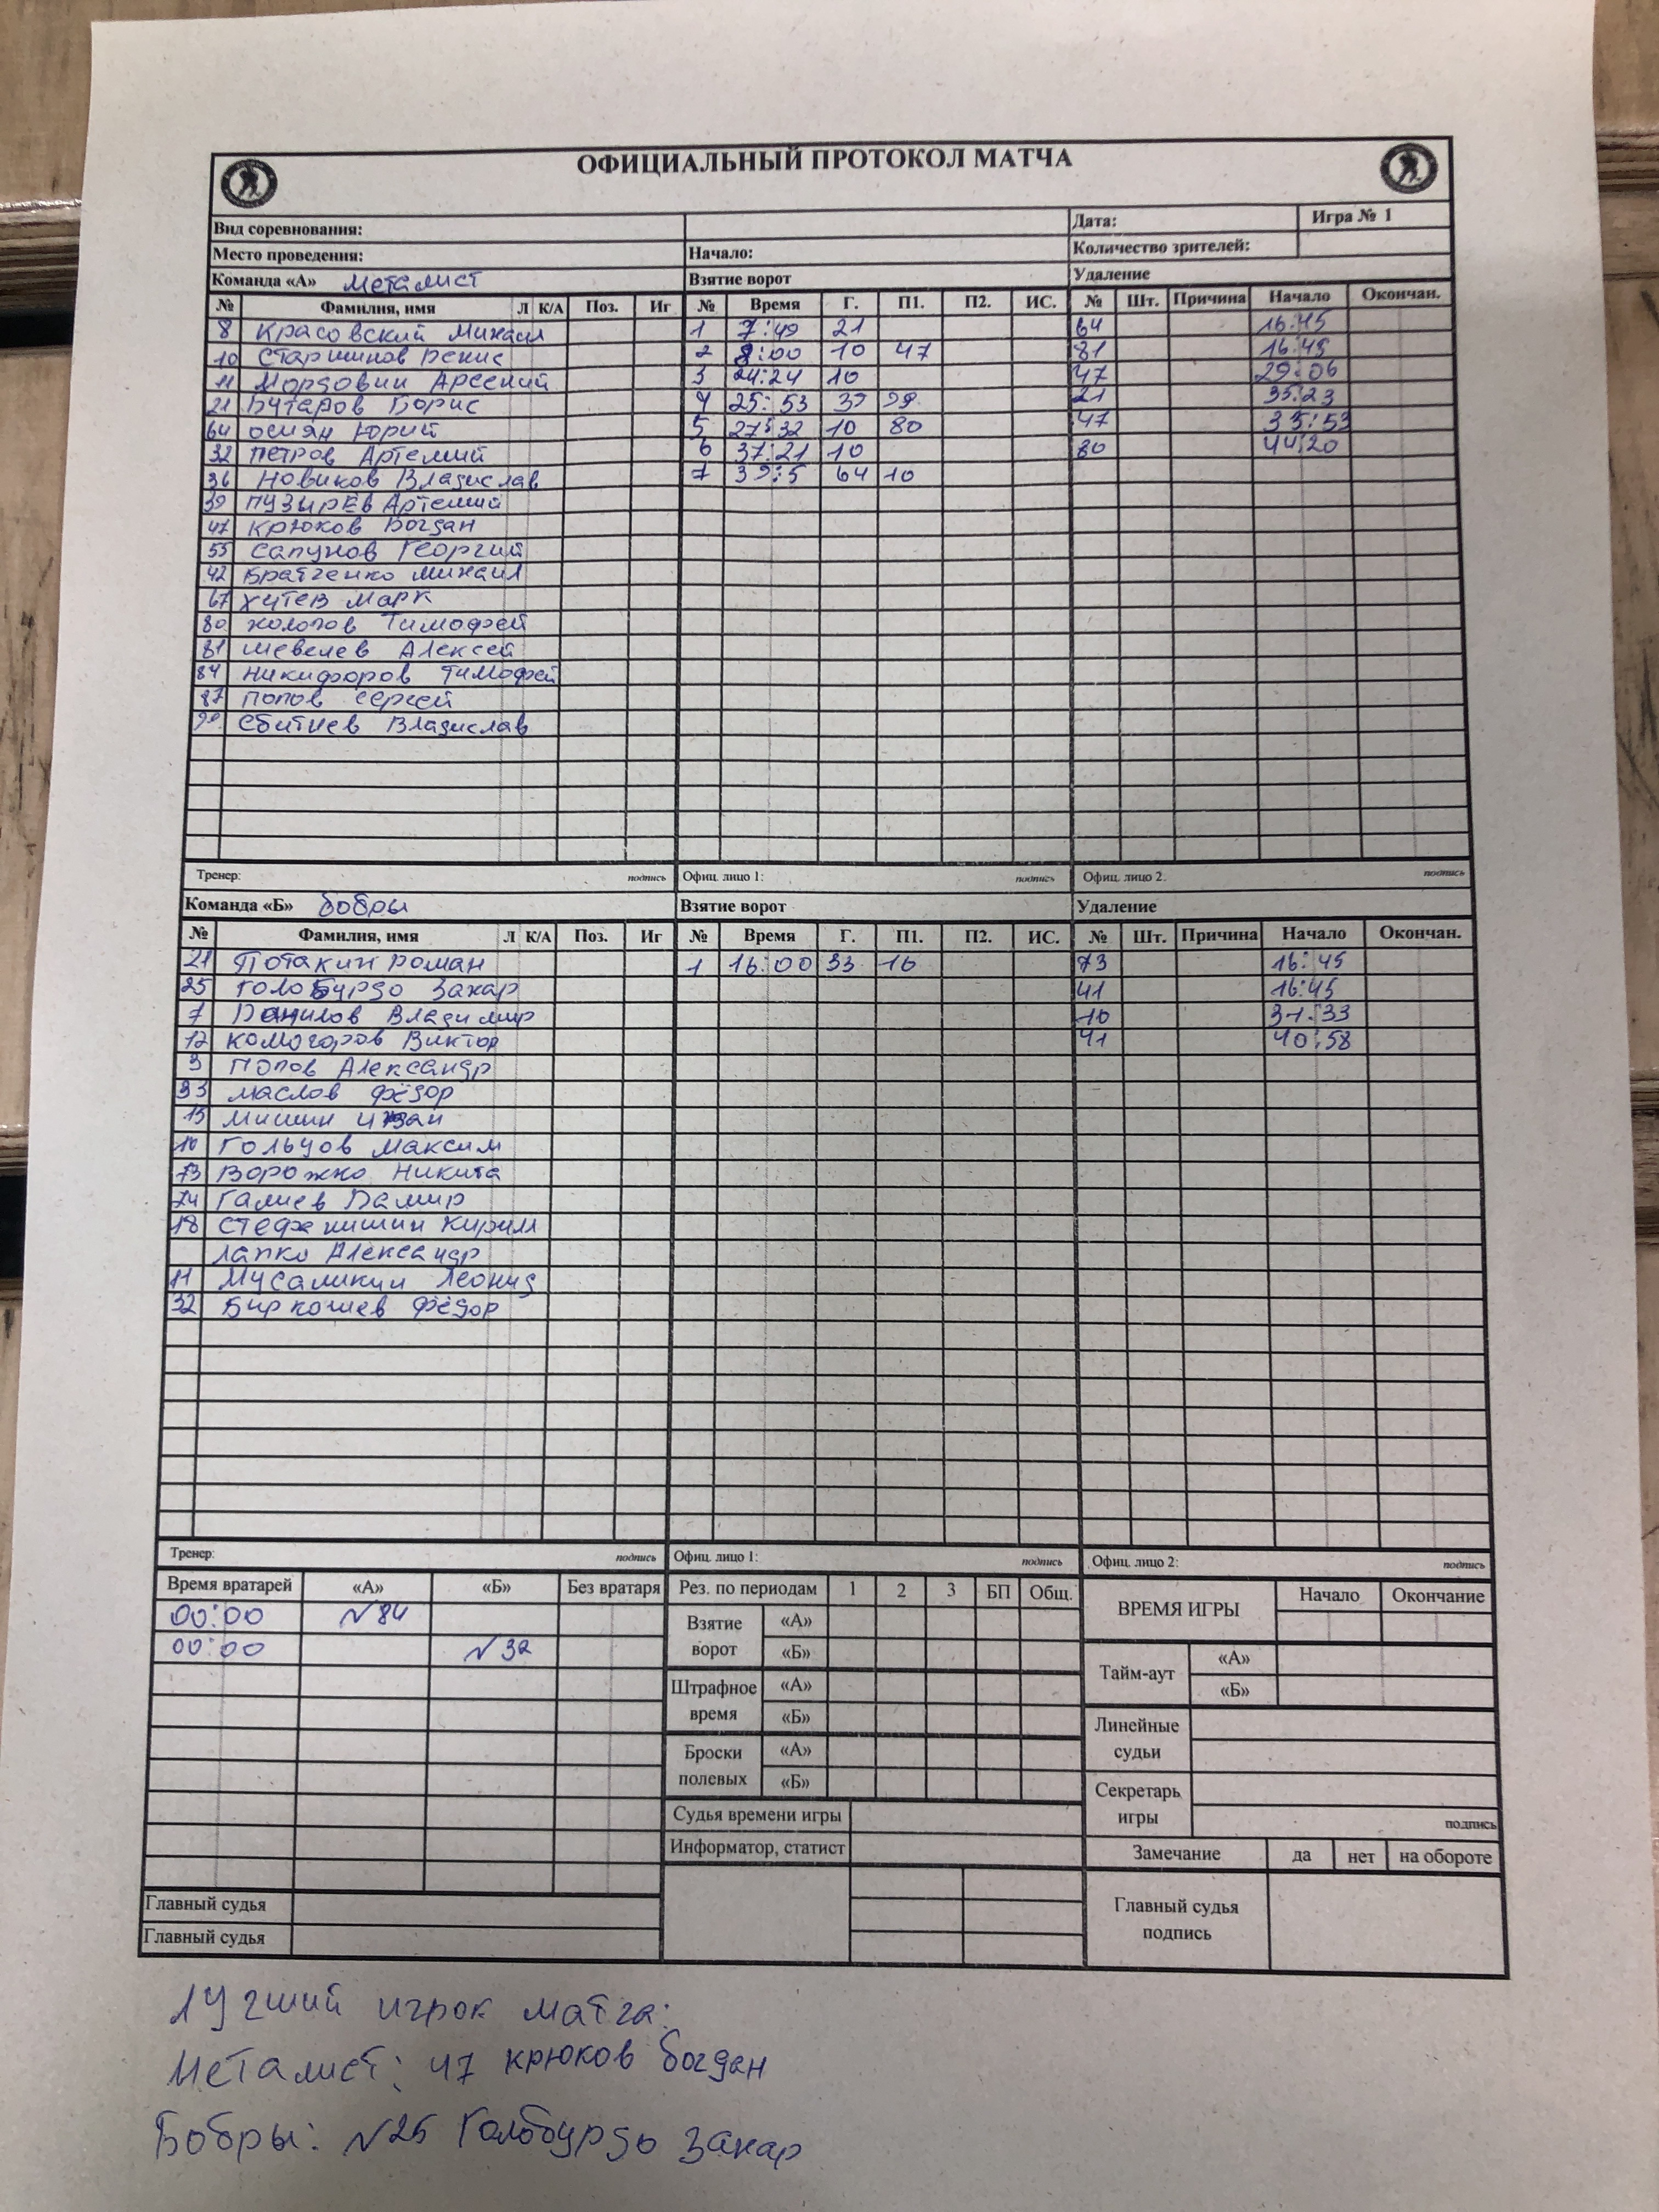 ОФИЦИАЛЬНЫЙ ПРОТОКОЛ МАТЧА
Вид соревнования: Дата: Игра № 1
Место проведения: Начало: Количество зрителей:
Команда «А» Металист Взятие ворот Удаление
№ Фамилия, имя Л К/А Поз. Иг № Время Г. П1. П2. ИС. № Шт. Причина Начало Окончан.
8 Красовский Михаил 1 7:49 21 64 16:45
10 Старшинов Денис 2 8:00 10 47 81 16:45
11 Мордовин Арсений 3 24:24 10 47 29:06
21 Бутаров Борис 4 25:53 39 99 21 35:23
64 Осиян Юрий 5 27:32 10 80 47 35:53
32 Петров Артемий 6 37:21 10 80 44:20
36 Новиков Владислав 7 39:5 64 10
39 Пузырёв Артемий
47 Крюков Богдан
55 Сапунов Георгий
42 Братченко Михаил
67 Хутев Марк
80 Холопов Тимофей
81 Шевелев Алексей
84 Никифоров Тимофей
87 Попов Сергей
99 Сбитнев Владислав
Тренер: подпись Офиц. лицо 1: подпись Офиц. лицо 2. подпись
Команда «Б» бобры Взятие ворот Удаление
№ Фамилия, имя Л К/А Поз. Иг № Время Г. П1. П2. ИС. № Шт. Причина Начало Окончан.
21 Потакин роман 1 16:00 33 16 73 16:45
25 Голобурдо Захар 41 16:45
7 Данилов Владимир 10 31:33
12 Комогоров Виктор 41 40:58
3 Попов Александр
33 Маслов Фёдор
15 Мишин
16 Гольцов Максим
73 Ворожко Никита
74 Галиев Дамир
18 Стефанишин Кирилл
Лапко Александр
11 Мусаликин Леонид
32 Биркошев Фёдор
Тренер: подпись Офиц. лицо 1: подпись Офиц. лицо 2: подпись
Время вратарей «А» «Б» Без вратаря Рез. по периодам 1 2 3 БП Общ. ВРЕМЯ ИГРЫ Начало Окончание
00:00 №84 Взятие ворот «А»
00:00 №32 «Б» Тайм-аут «А»
Штрафное время «А» «Б»
«Б» Линейные судьи
Броски полевых «А»
«Б» Секретарь игры
Судья времени игры подпись
Информатор, статист Замечание да нет на обороте
Главный судья Главный судья подпись
Главный судья
Лучший игрок матча:
Металист: 47 Крюков богдан
Бобры: №25 Голобурдо Захар